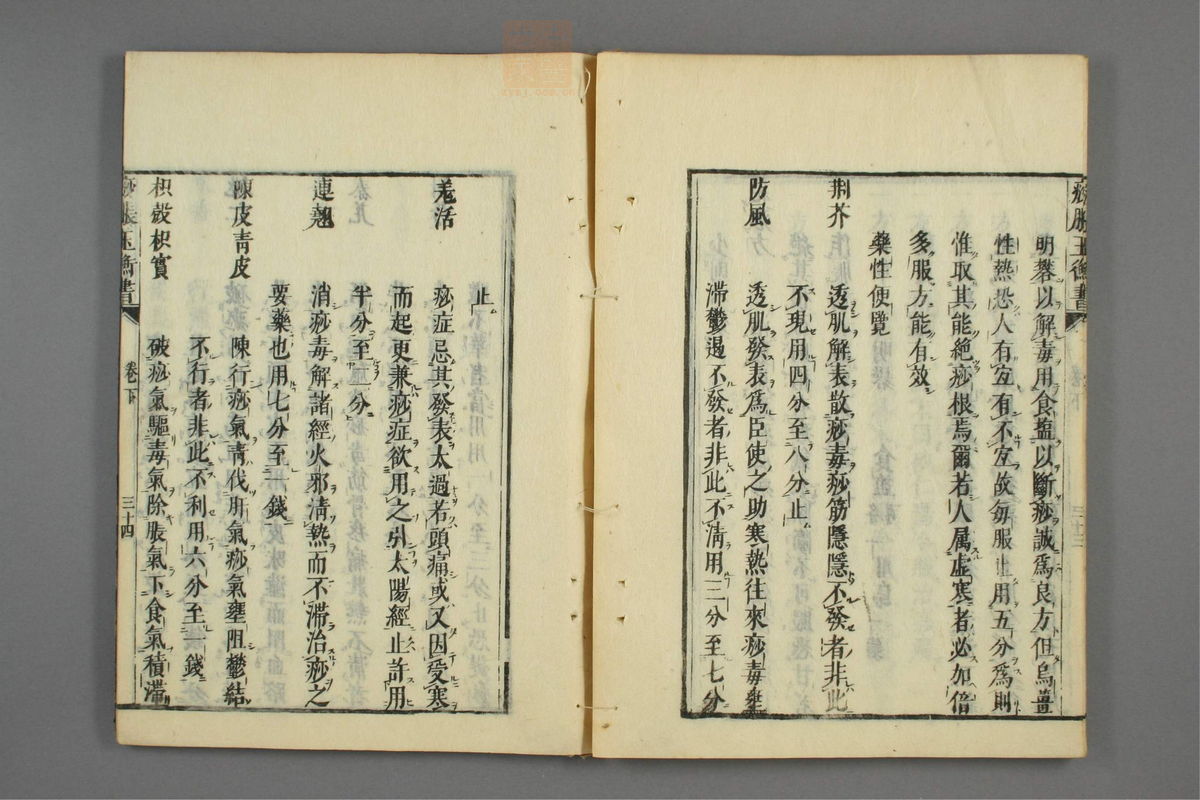 痧脹玉衡書
明礬以解毒用食塩以斷痧誠爲良方但烏薑
性熱恐人有宜有不宜故每服止用五分爲則
惟取其能絶痧根焉爾若人属虚寒者必加倍
多服方能有效
藥性便覽
荆芥 透肌解表散痧毒痧筋隱隱不發者非此
不現用四分至八分止
防風 透肌發表爲臣使之助寒熱往來痧毒壅
滯鬱遏不發者非此不淸用三分至七分
止
羌活 痧症忌其發表太過若頭痛或又因受寒
而起更兼痧症欲用之引太陽經止許用
半分至二分
連翹 消痧毒解諸經火邪淸熱而不滯治痧之
要藥也用七分至一錢
陳皮靑皮 陳行痧氣靑伐肝氣痧氣壅阻鬱結
不行者非此不利用六分至一錢
枳殼枳實 破痧氣驅毒氣除脹氣下食氣積滯
痧脹玉衡書 卷下 三十四